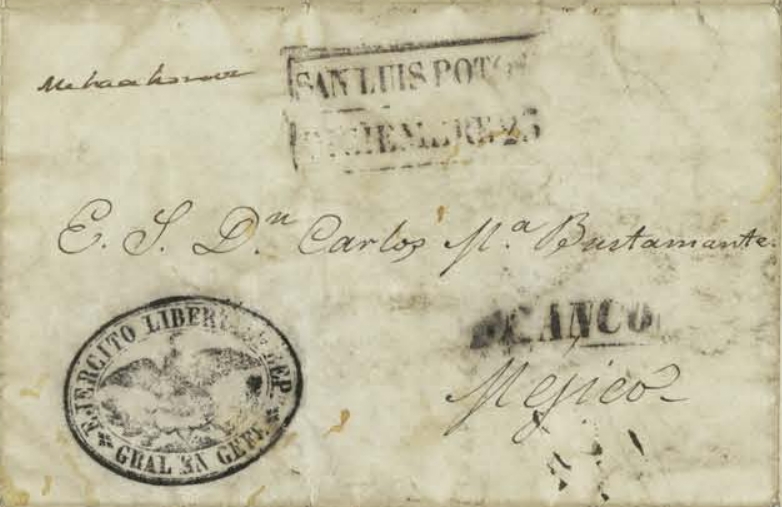 SAN LUIS POTO
DICIEMBRE 25
E. S. D.n Carlos M.a Bustamante
FRANCO
Mejico
EJERCITO LIBER DEP.
GRAL EN GEFE